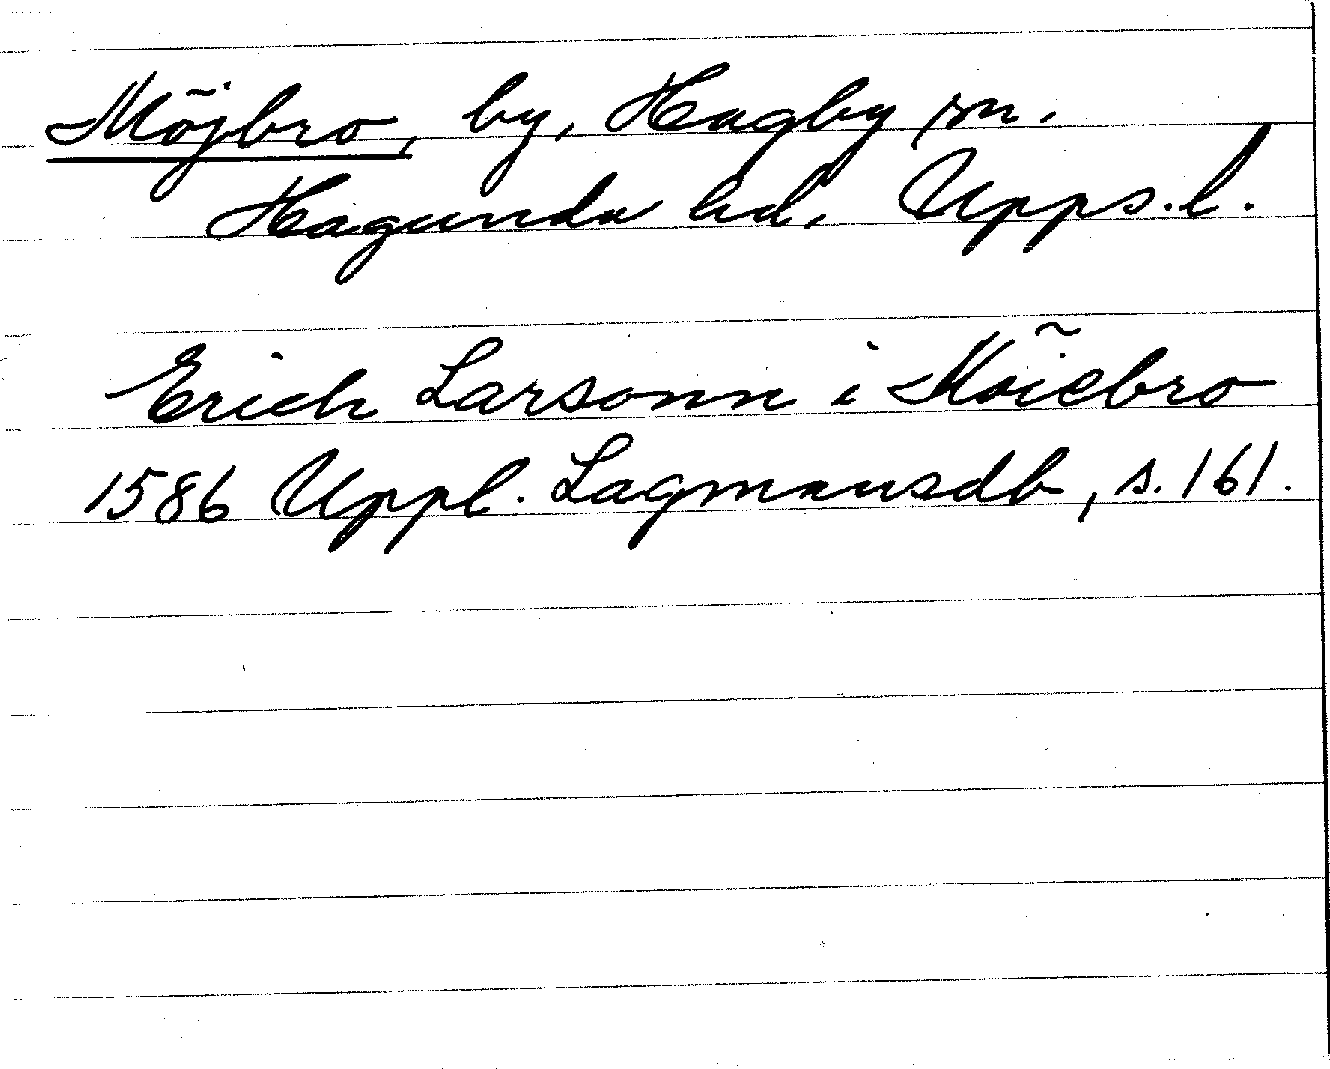 Möjbro, by, Hagby sn.
Hagunda hd. Upps. l.
Erich Larsonn i Möiebro
1586 Uppl. Lagmansdb, s. 161.